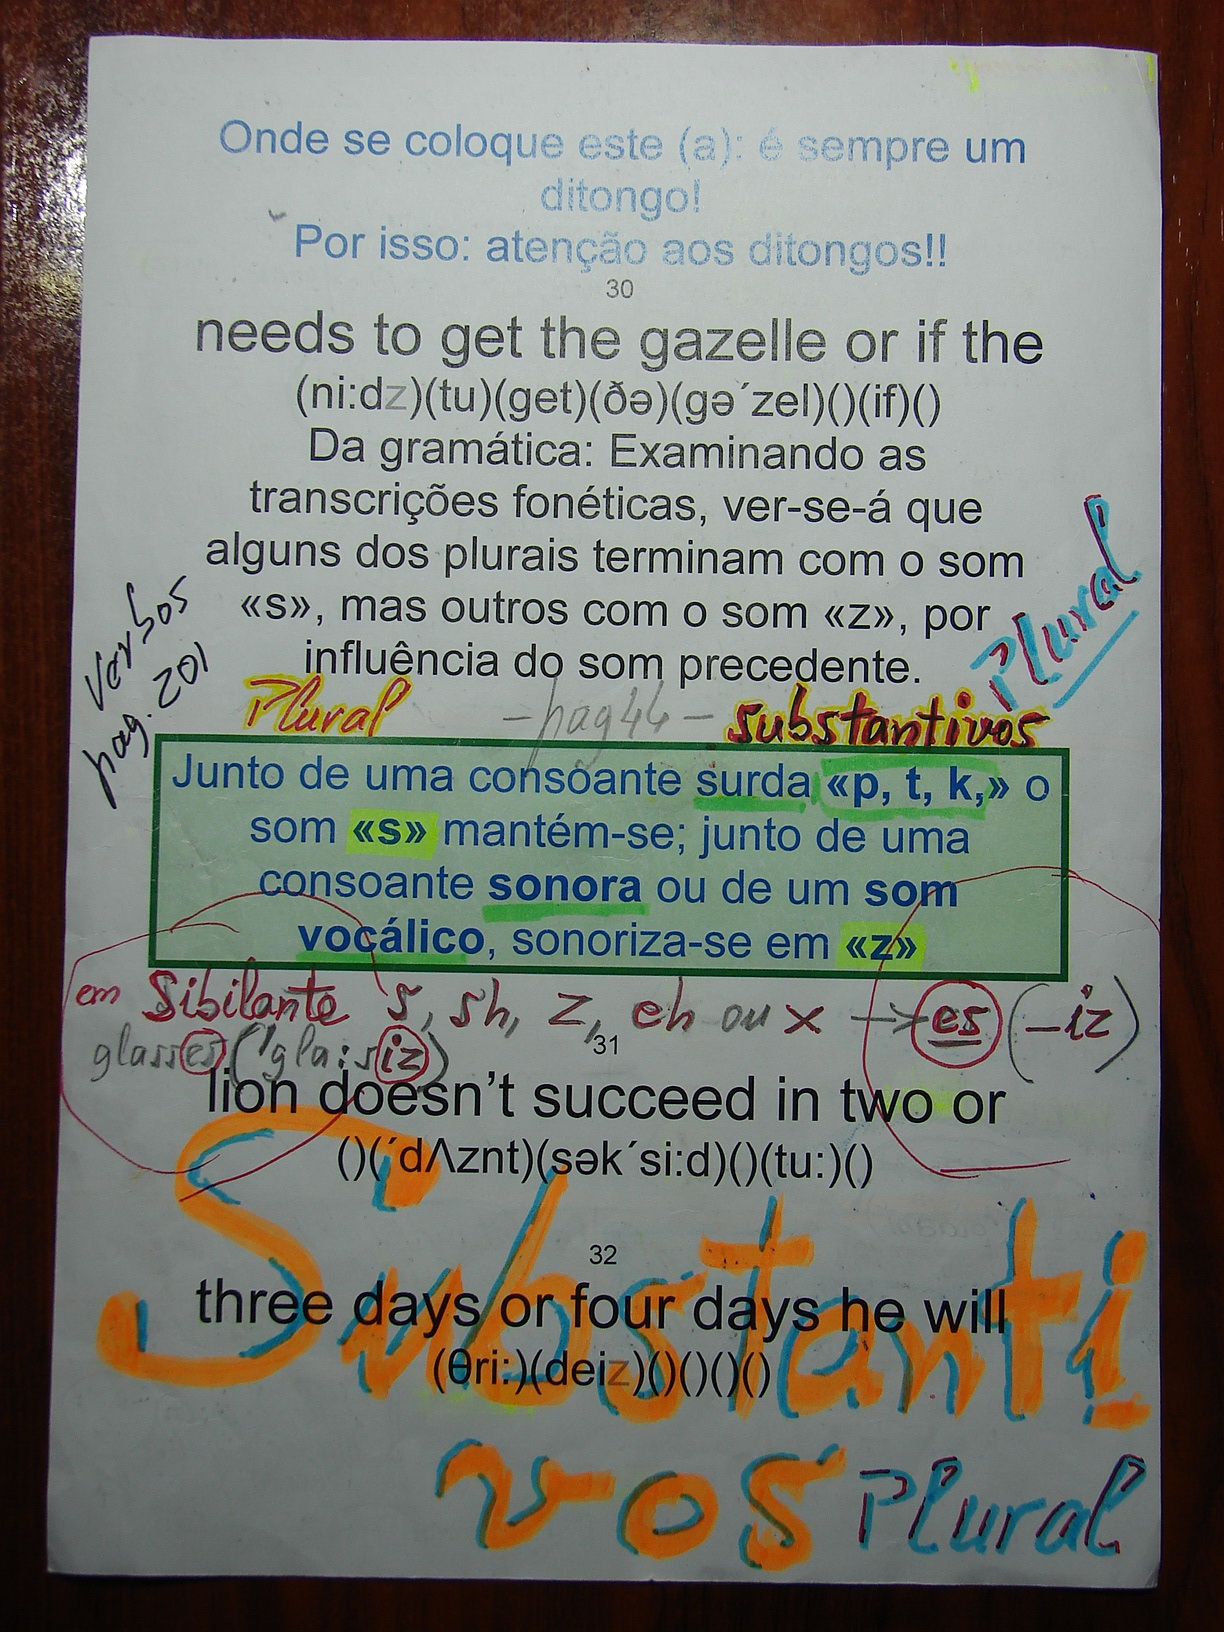 Onde se coloque este (a): é sempre um
ditongo!
Por isso: atenção aos ditongos!!
30
needs to get the gazelle or if the
(ni:dz)(tu)(get)(ðə)(gə´zel)()(if)()
Da gramática: Examinando as
transcrições fonéticas, ver-se-á que
alguns dos plurais terminam com o som
«s», mas outros com o som «z», por
influência do som precedente.
Plural
Verbos
pag. 201
Plural - pag 44 - substantivos
Junto de uma consoante surda «p, t, k,» o
som «s» mantém-se; junto de uma
consoante sonora ou de um som
vocálico, sonoriza-se em «z»
em Sibilante s, sh, z, ch ou x → es (-iz)
glasses ('gla:siz)
31
lion doesn't succeed in two or
()(´dɅznt)(sək´si:d)()(tu:)()
32
three days or four days he will
(θri:)(deiz)()()()()
Substanti
vos Plural